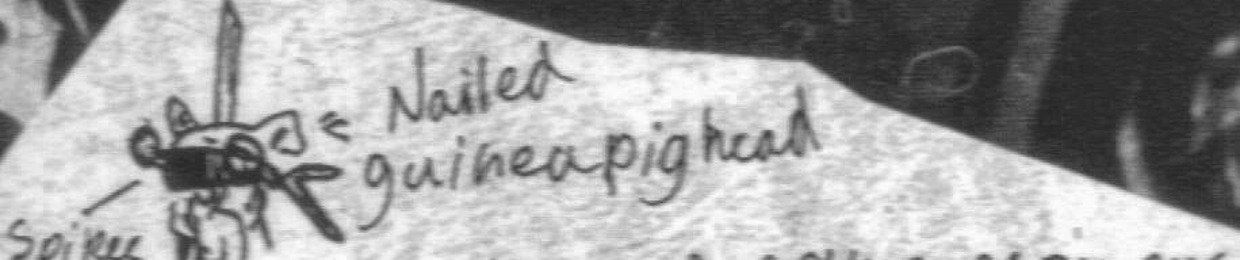 Nailed
guineapig head
Spikes